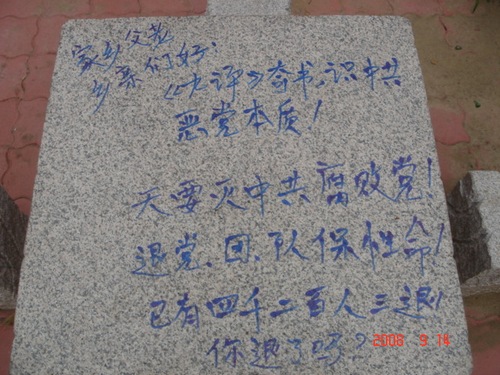 家乡父老
乡亲们好!
《九评》奇书,识中共
恶党本质!
天要灭中共腐败党!
退党、团、队保性命!
已有四千二百人三退!
你退了吗?
2008 9.14